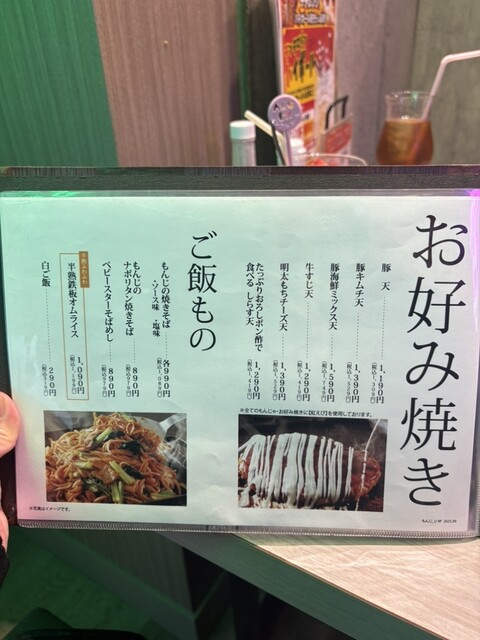 お好み焼き
豚 天 1,190円
(税込1,309円)
豚キムチ天 1,390円
(税込1,529円)
豚海鮮ミックス天 1,590円
(税込1,749円)
牛すじ天 1,290円
(税込1,419円)
明太もちチーズ天 1,390円
(税込1,529円)
たっぷりおろしポン酢で
食べる しらす天 1,290円
(税込1,419円)
※全てのもんじゃ・お好み焼きに【紅えび】を使用しております。
ご飯もの
もんじの焼きそば
・ソース味 ・塩味 各990円
もんじの
ナポリタン焼きそば 890円
(税込979円)
ベビースターそばめし 810円
半熟鉄板オムライス 1,090円
(税込1,199円)
白ご飯 290円
※写真はイメージです。